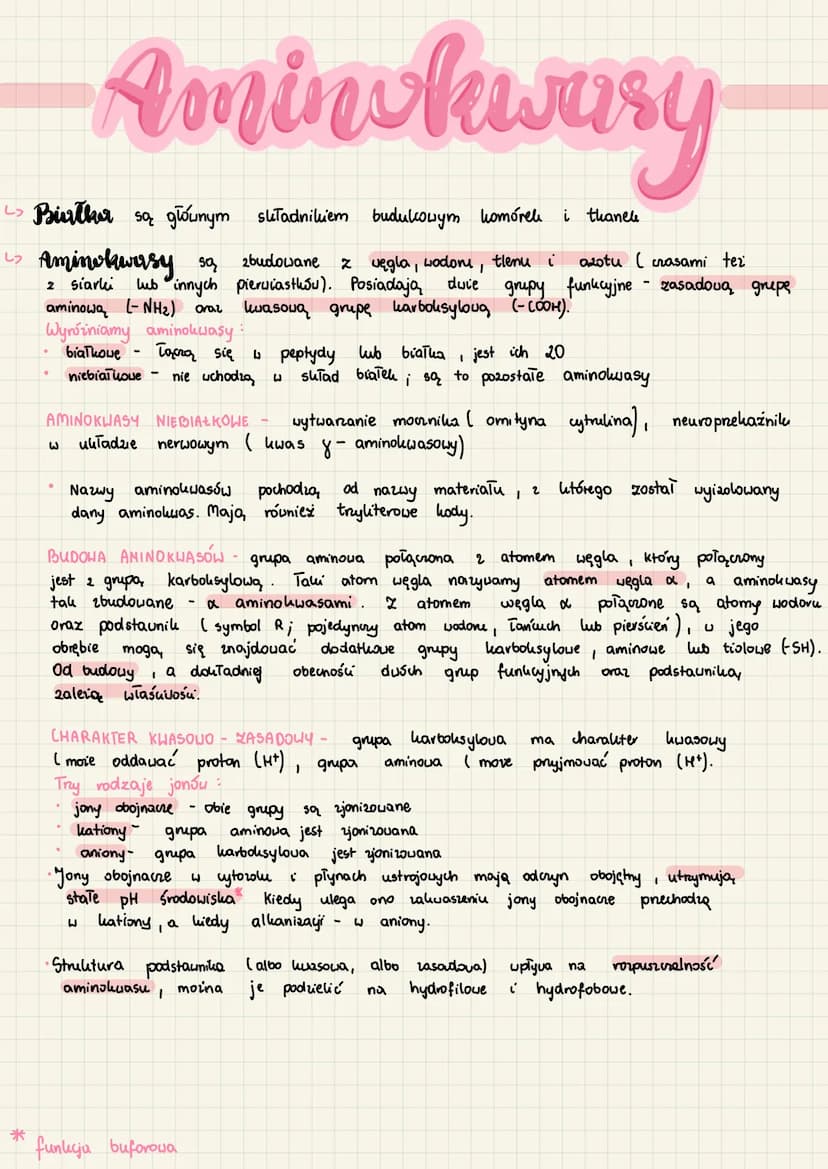 Aminokwasy
↳ Białka są głównym składnikiem budulcowym komórek i tkanek
↳ Aminokwasy są zbudowane z węgla, wodoru, tlenu i azotu (czasami też
z siarki lub innych pierwiastków). Posiadają dwie grupy funkcyjne - zasadową grupę
aminową (-NH₂) oraz kwasową grupę karboksylową (-COOH).
Wyróżniamy aminokwasy:
• białkowe - łączą się w peptydy lub białka, jest ich 20
• niebiałkowe - nie wchodzą w skład białek; są to pozostałe aminokwasy
AMINOKWASY NIEBIAŁKOWE - wytwarzanie mocznika (ornityna cytrulina), neuroprzekaźnik
w układzie nerwowym (kwas γ-aminokwasowy)
• Nazwy aminokwasów pochodzą od nazwy materiału, z którego został wyizolowany
dany aminokwas. Mają również trzyliterowe kody.
BUDOWA AMINOKWASÓW - grupa aminowa połączona z atomem węgla, który połączony
jest z grupą karboksylową. Taki atom węgla nazywamy atomem węgla α, a aminokwasy
tak zbudowane - α aminokwasami. Z atomem węgla α połączone są atomy wodoru
oraz podstawnik (symbol R; pojedynczy atom wodoru, łańcuch lub pierścień), w jego
obrębie mogą się znajdować dodatkowe grupy karboksylowe, aminowe lub tiolowe (-SH).
Od budowy, a dokładniej obecności dwóch grup funkcyjnych oraz podstawnika,
zależą właściwości.
CHARAKTER KWASOWO - ZASADOWY - grupa karboksylowa ma charakter kwasowy
(może oddawać proton (H⁺), grupa aminowa (może przyjmować proton (H⁺).
Trzy rodzaje jonów:
• jony obojnacze - obie grupy są zjonizowane
• kationy - grupa aminowa jest zjonizowana
• aniony - grupa karboksylowa jest zjonizowana
• Jony obojnacze w cytozolu i płynach ustrojowych mają odczyn obojętny, utrzymują
stałe pH środowiska* Kiedy ulega ono zakwaszeniu jony obojnacze przechodzą
w kationy, a kiedy alkanizacji - w aniony.
• Struktura podstawnika (albo kwasowa, albo zasadowa) wpływa na rozpuszczalność
aminokwasu, można je podzielić na hydrofilowe i hydrofobowe.
* funkcja buforowa